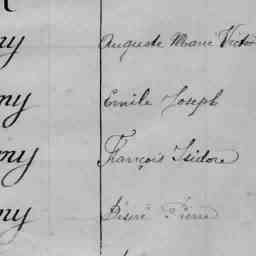 ny Auguste Marie Victor
ny Emile Joseph
ny François Isidore
ny Désiré Pierre